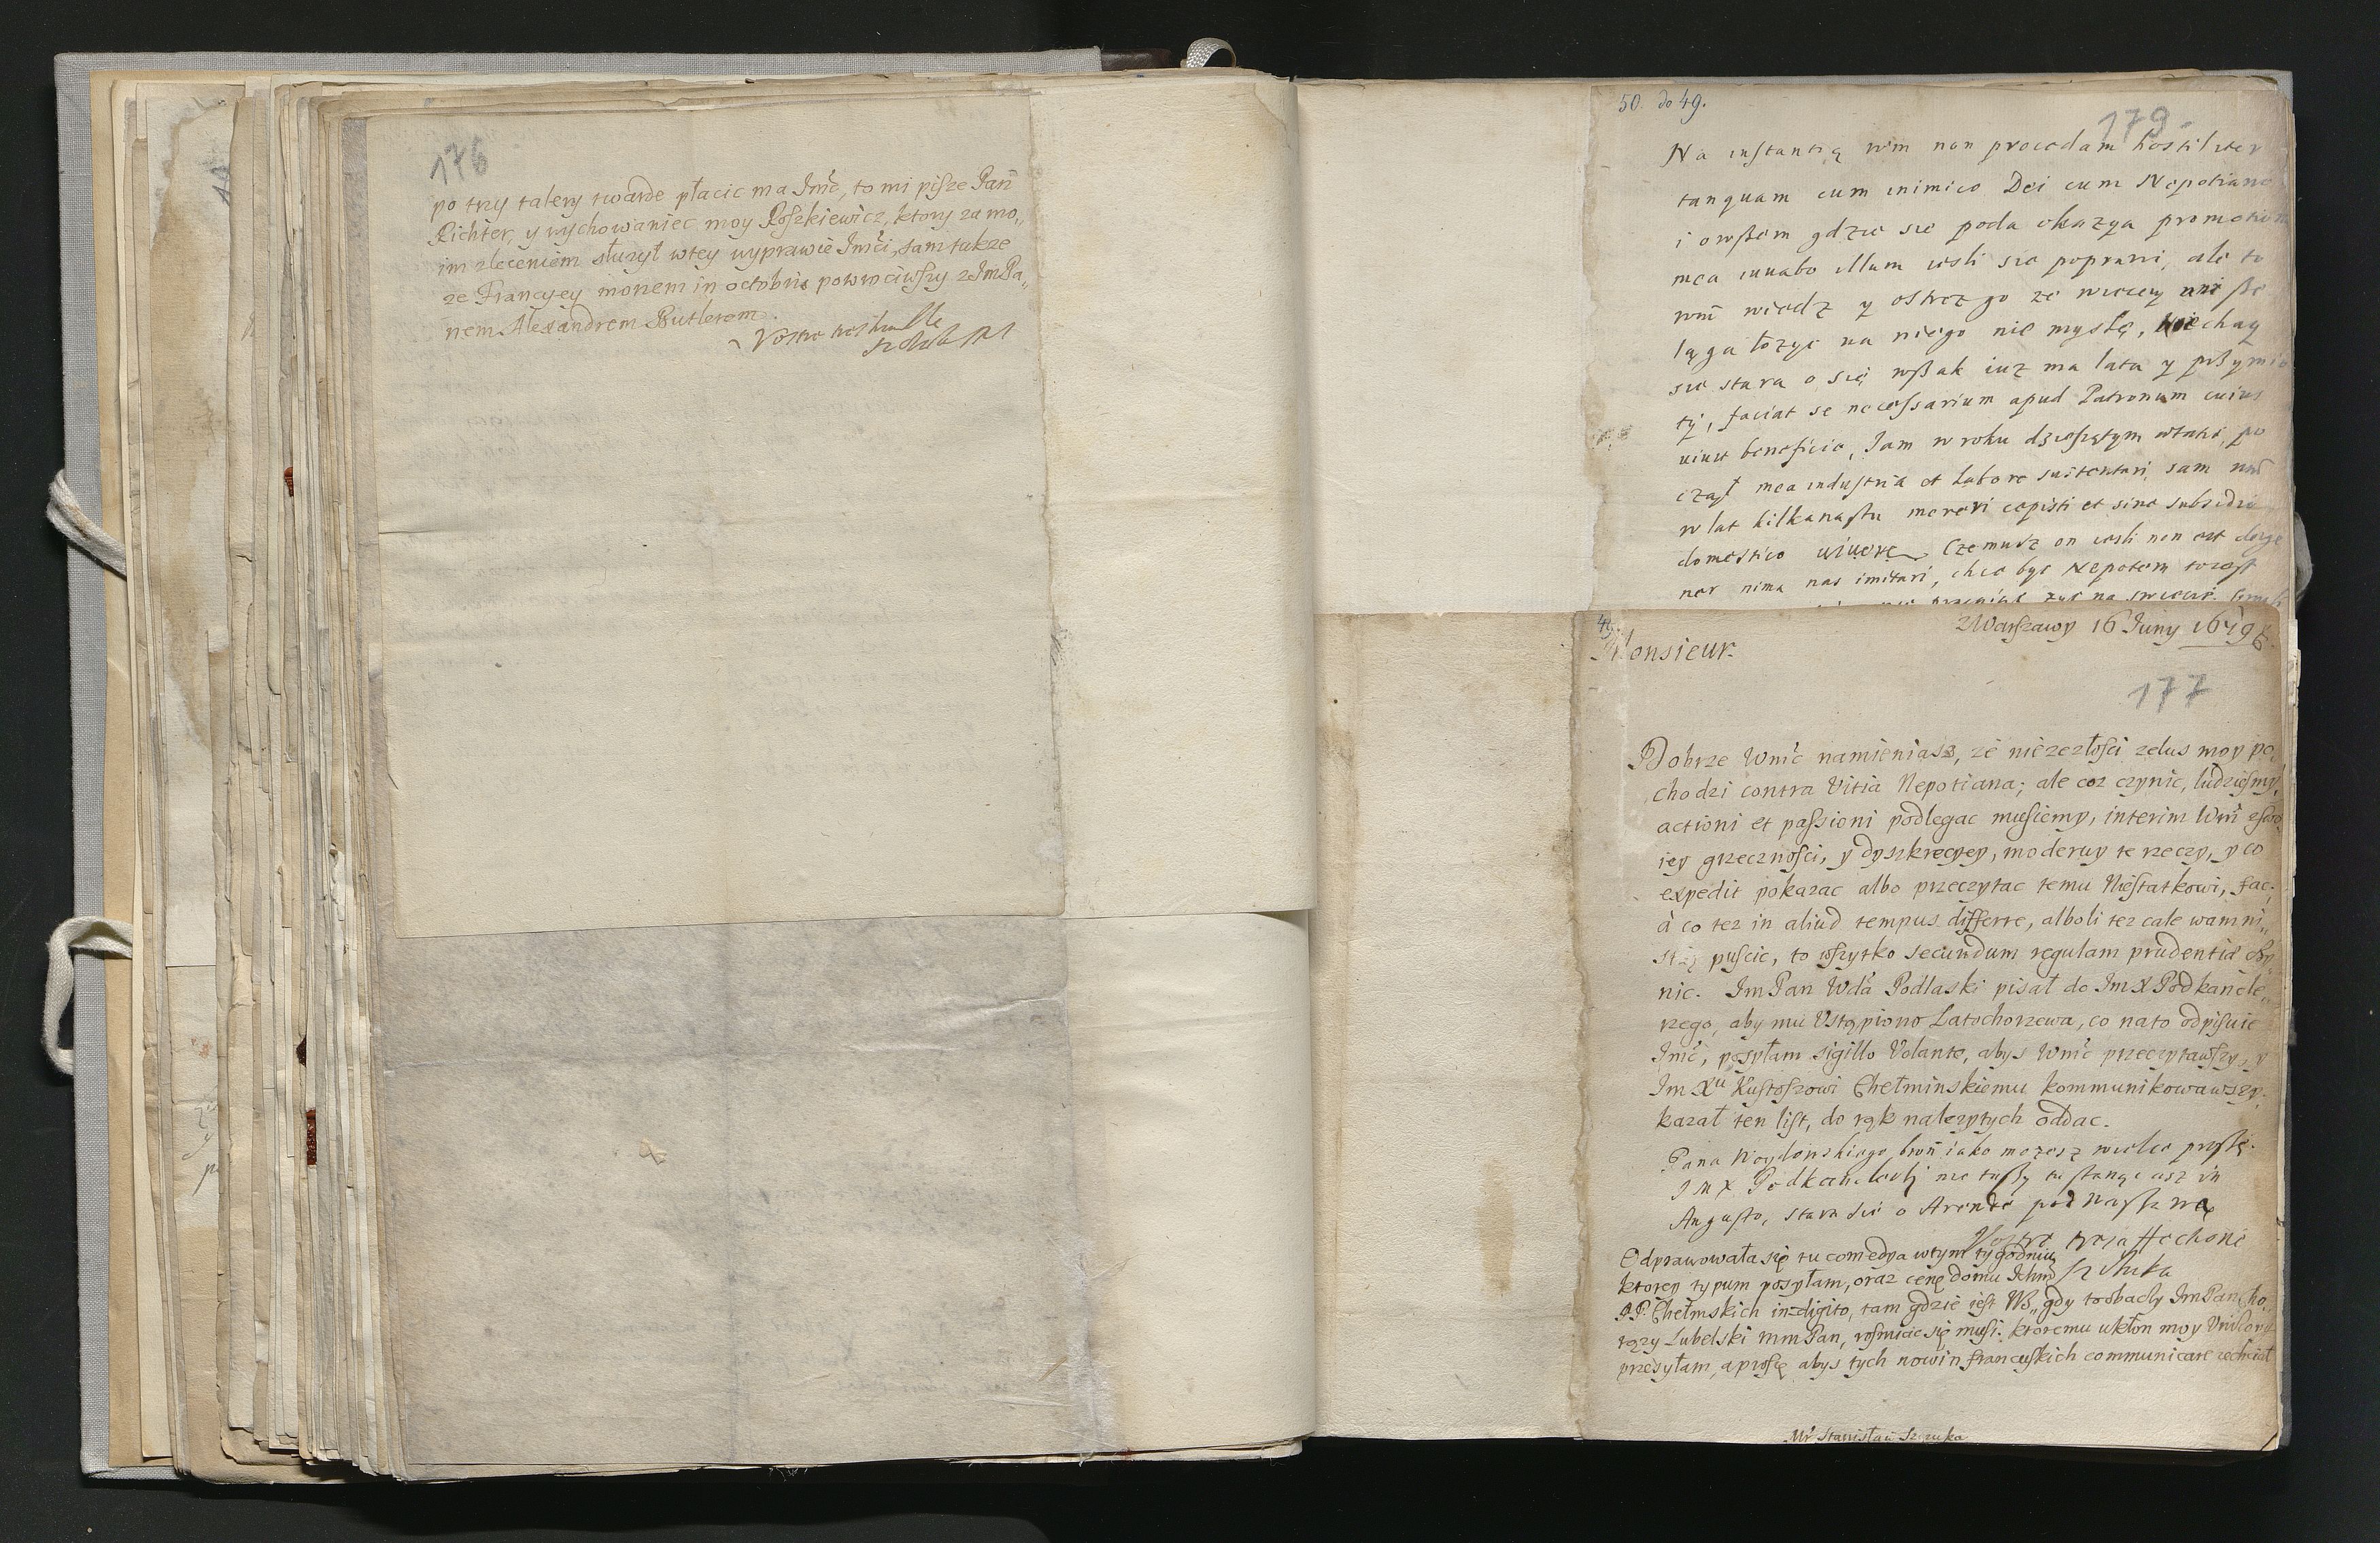 176
po trzy talery twarde płacic ma Jmć, to mi pisze Pan
Richter, y wychowaniec moy Roszkiewicz, ktory za mo„
im zleceniem słuzył wtey wyprawie Jmći, sam takze
ze Francyey monem in octobris powrociwszy z JmPa„
nem Alexandrem Butlerem.
50. do 49.
179
Na instantią wm non procedam hostiliter
tanquam cum inimico Dei cum Nepotiano
i owßem gdzie sie poda okazya promotion
mea iuuabo illum iesli sie poprawi, ale to
wm wiedz y ostrzez go ze wiecey nni ße
ląga łozyc na niego nie myslę, Niechay
sie stara o się wßak iuz ma lata y pßymio
ty, faciat se necessarium apud Patronum cuius
uiuit beneficio, Jam w roku dziesiątym wtaki po
czął mea industria et labore sustentari, sam
w lat kilkanastu mereri cepisti et sine subsidio
domestico uiuere Czemusz on iesli non est dege
ner nima nas imitari, chce byc Nepotem
49.
zWarszawy 16 Juny 1679
Monsieur.
177
Dobrze Wmć namieniasz, ze niezezłosci zelus moy po„
chodzi contra Vitia Nepotiana; ale coz czynic, ludziesmy,
actioni et passioni podlegac musiemy, interim Wm zswo„
iey grzecznosci, y dyszkrecyey, moderuy te rzeczy, y co
expedit pokazac albo przeczytac temu Niestatkowi, fac,
à co tez in aliud tempus differre, alboli tez cale wamni„
stią puscic, to wszytko secundum regulam prudentiæ czy„
nic. Jm Pan Wda Podlaski pisał do Jm X Podkancle„
rzego, aby mu Vstąpiono Latochorzewa, co nato odpisuie
Jmć, posyłam sigillo Volante, abys Wmć przeczytawszy, y
Jm Xu Kustoszowi Chełminskiemu kommunikowawszy,
kazał ten list, do rąk nalezytych oddac.
Pana Woydowskiego bron iako mozesz wielce proszę.
Jm X Podkanclerzy nie tußy tu stanąc asz in
Augusto, stara sie o Arende pod Warszawą
Vostre tres affectioné
Szczuka
Odprawowała się tu comedya wtym tygodniu,
ktorey typum posyłam, oraz cenę domu Ichm
PP. Chełmskich indigito, tam gdzie iest WB„ gdy zobaczy Jm Pan Cho„
rązy Lubelski mm Pan, rosmiac się musi. ktoremu ukłon moy Vnizony
przesyłam, a proszę abys tych nowin francuskich communicare zechciał
Mr Stanisław Szczuka